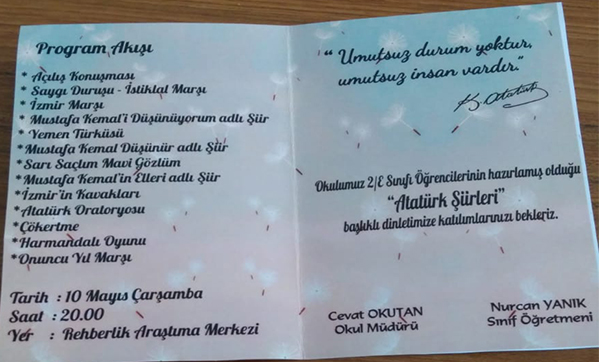 Program Akışı
* Açılış Konuşması
* Saygı Duruşu - İstiklal Marşı
* İzmir Marşı
* Mustafa Kemal'i Düşünüyorum adlı Şiir
* Yemen Türküsü
*Mustafa Kemal Düşünür adlı Şiir
*Sarı Saçlım Mavi Gözlüm
*Mustafa Kemal'in Elleri adlı Şiir
*İzmir'in Kavakları
*Atatürk Oratoryosu
*Çökertme
*Harmandalı Oyunu
*Onuncu Yıl Marşı
Tarih : 10 Mayıs Çarşamba
Saat : 20.00
Yer : Rehberlik Araştıma Merkezi
“ Umutsuz durum yoktur,
umutsuz insan vardır.”
K. Atatürk
Okulumuz 2/E Sınıfı Öğrencilerinin hazırlamış olduğu
“Atatürk Şiirleri”
başlıklı dinletimize katılımlarınızı bekleriz.
Cevat OKUTAN
Okul Müdürü
Nurcan YANIK
Sınıf Öğretmeni